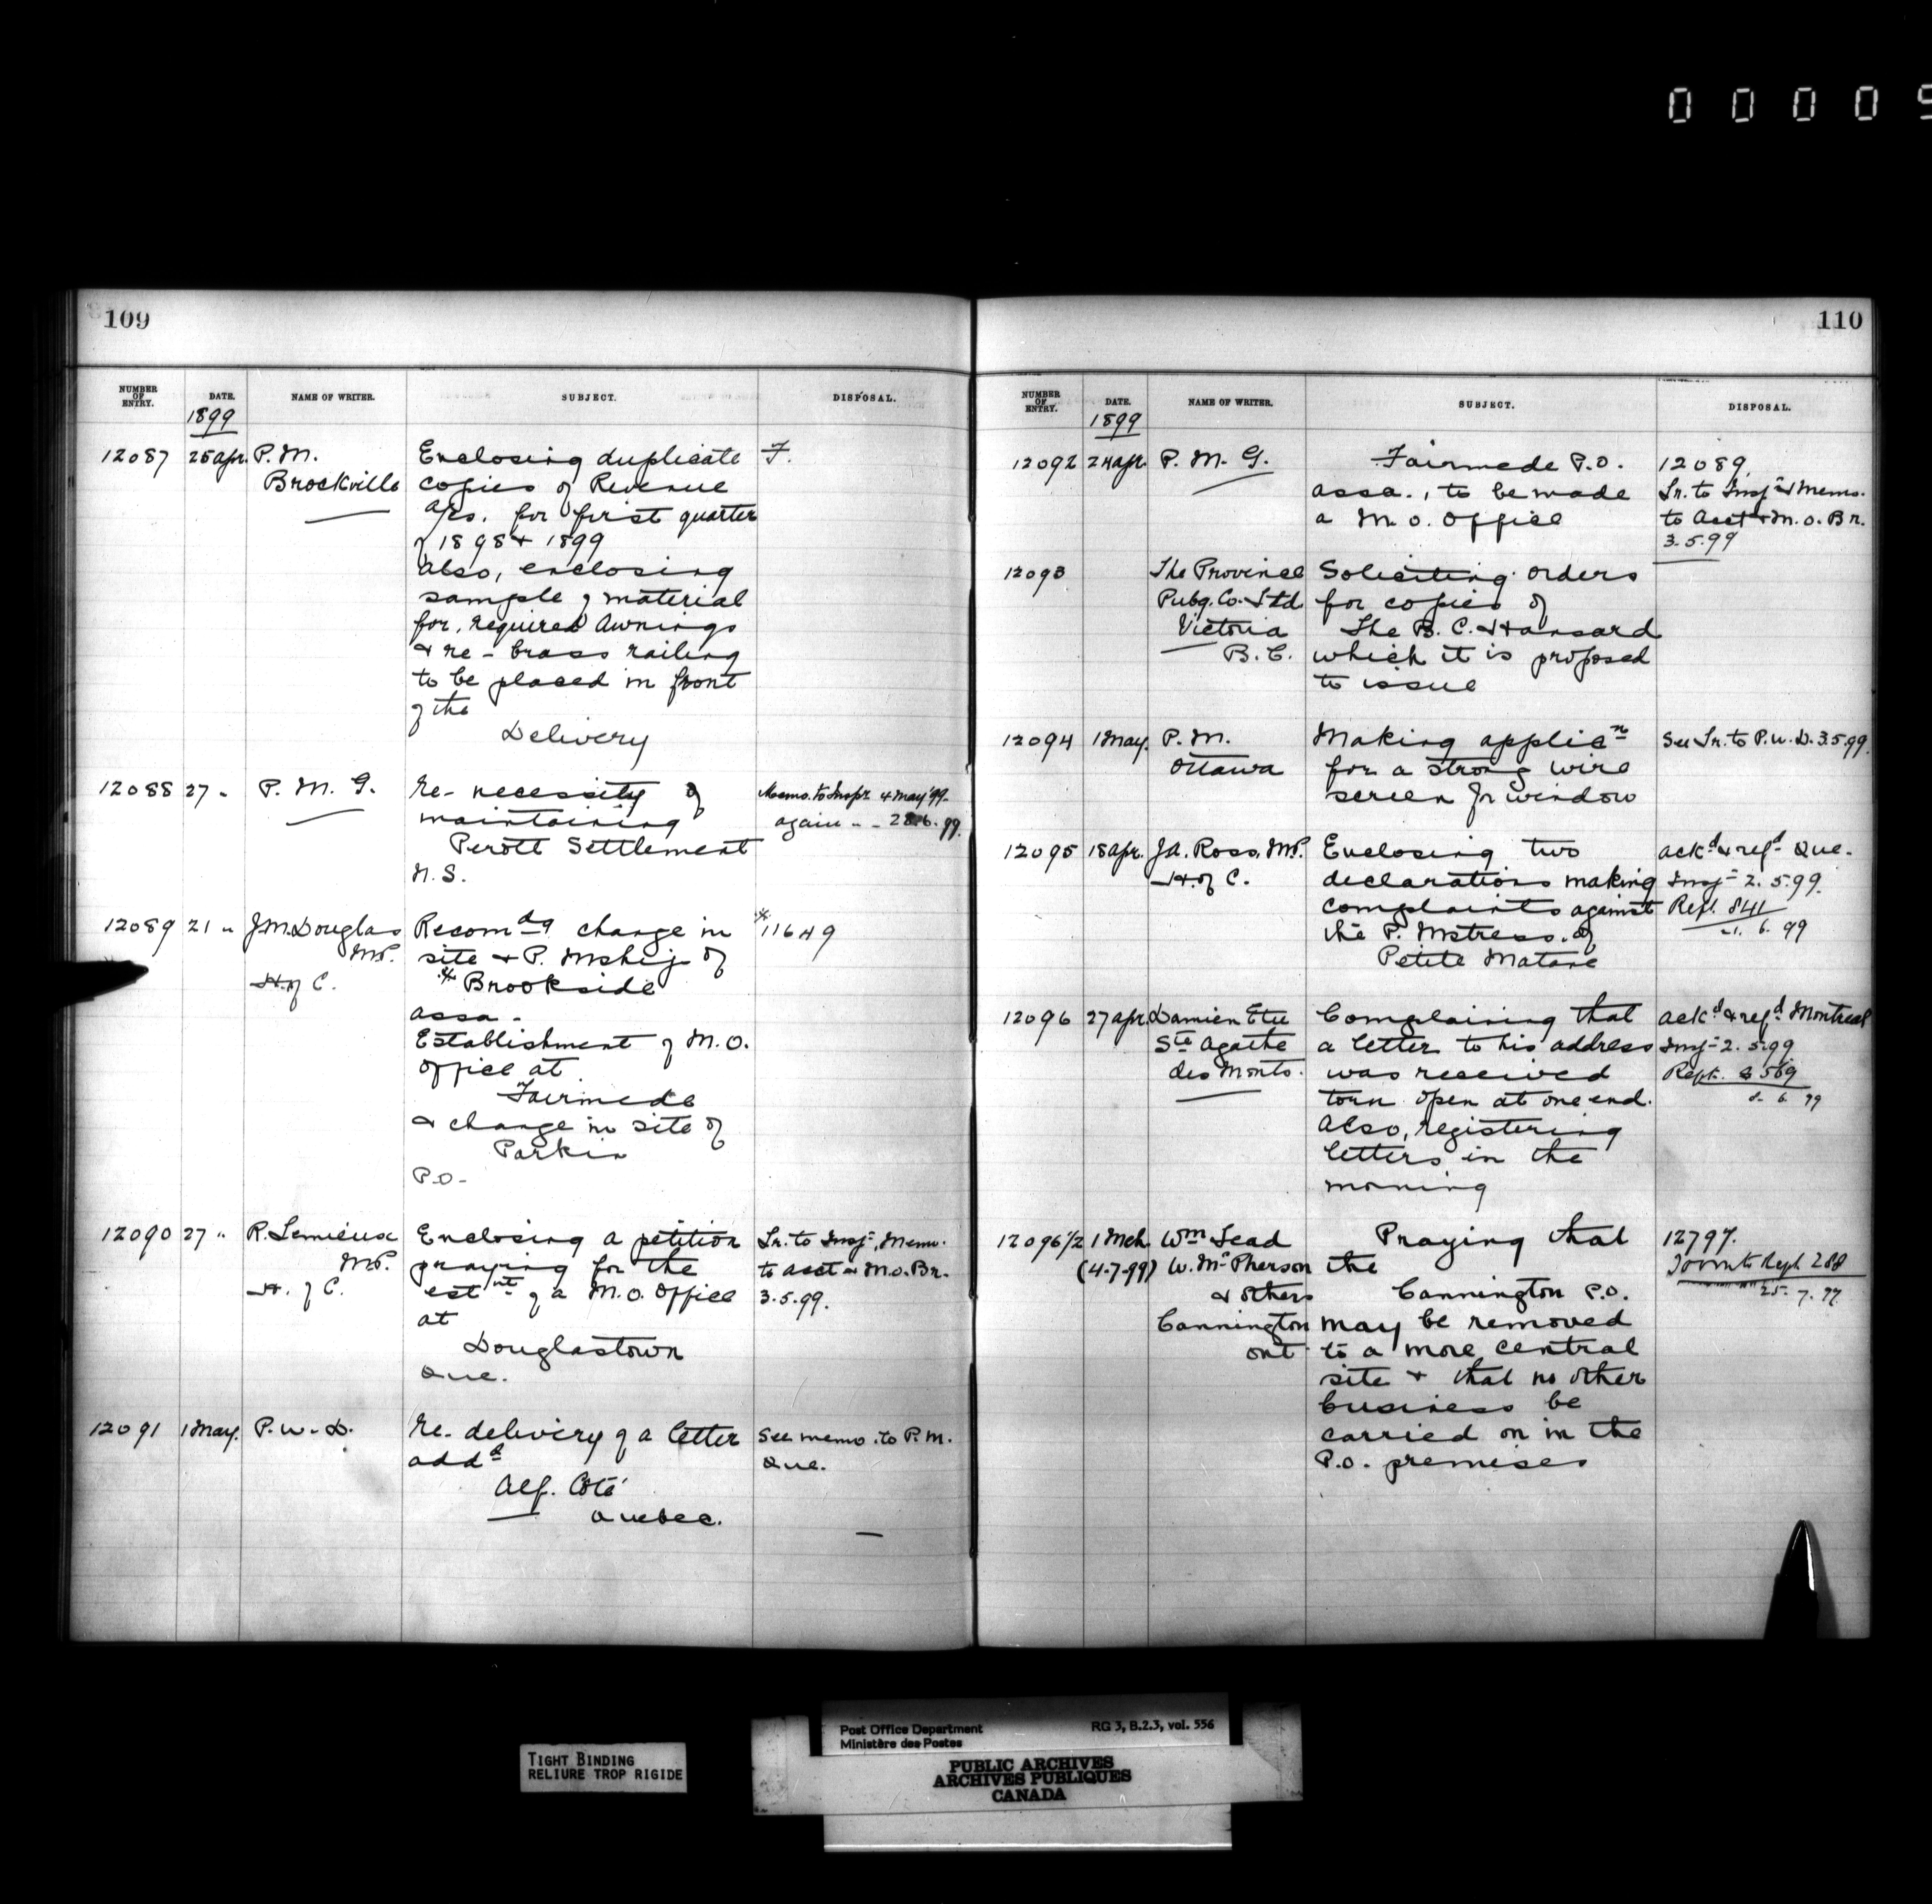 0 0 0 0 5
109
NUMBER OF ENTRY. DATE. NAME OF WRITER. SUBJECT. DISPOSAL.
1899
12087 25 Apr. P. M. Enclosing duplicate F.
Brockville copies of Revenue
a/cs. for first quarter
of 1898 & 1899
Also, enclosing
sample of material
for required Awnings
& re- brass railing
to be placed in front
of the
Delivery
12088 27 " P. M. G. Re- necessity of Memo. to Inspr. 4 May '99.
maintaining again " - 28.6.99.
Perott Settlement
N.S.
12089 21 " J.M. Douglas Recomdg change in * 11649
MP. site & P. Mship of
H. of C. * Brookside
Assa -
Establishment of M.O.
Office at
Fairmede
& change in site of
Parkin
P.O-
12090 27 " R. Lemieux Enclosing a petition Lr. to Insp-, Memo.
MP. praying for the to Acct & M.O. Br.
H. of C. estnt of a M.O. Office 3.5.99.
at
Douglastown
Que.
12091 1 May. P.W.D. Re- delivery of a letter See memo. to P.M.
addd Que.
Alf. Coté
Quebec.
110
NUMBER OF ENTRY. DATE. NAME OF WRITER. SUBJECT. DISPOSAL.
1899
12092 24 Apr. P. M. G. Fairmede P.O. 12089.
Assa., to be made Lr. to Insp- & Memo.
a M.O. Office to Acct & M.O. Br.
3.5.99
12093 The Province Soliciting orders
Pubg. Co. Ltd. for copies of
Victoria The B.C. Hansard
B.C. which it is proposed
to issue
12094 1 May. P.M. Making applicn See Lr. to P.W.D. 3.5.99.
Ottawa for a strong wire
screen for window
12095 18 Apr. J.A. Ross, MP. Enclosing two ackd & refd Que.
H. of C. declarations making Insp- 2.5.99.
complaints against Rept. 841
the P. Mstress. of 21. 6. 99
Petite Matane
12096 27 Apr. Damien Etu Complaining that ackd & refd Montreal
Ste Agathe a letter to his address Insp- 2.5.99
des Monts. was received Rept. 569
torn open at one end. 8. 6. 99
Also, registering
letters in the
morning
12096 1/2 1 Mch. Wm Lead Praying that 12797.
(4-7-99) W. McPherson the Toronto Rept 288
& others Cannington P.O. 25. 7. 99
Cannington may be removed
Ont to a more central
site & that no other
business be
carried on in the
P.O. premises
Post Office Department RG 3, B.2.3, vol. 556
Ministère des Postes
TIGHT BINDING
RELIURE TROP RIGIDE
PUBLIC ARCHIVES
ARCHIVES PUBLIQUES
CANADA